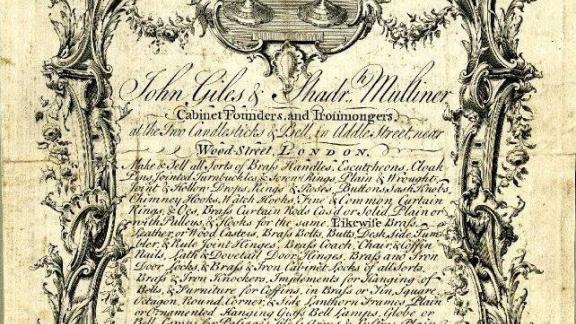 John Giles & Shadr.h Mulliner
Cabinet Founders, and Ironmongers,
at the Two Candlesticks & Bell, in Addle Street, near
Wood-Street, LONDON.
Make & Sell all Sorts of Brass Handles, Escutcheons, Cloak
Pins, Jointed Turnbuckles & Screw Rings, Plain & Wrought,
Joint & Hollow Drops, Rings & Roses, Buttons, Sash Knobs,
Chimney Hooks, Watch Hooks, Fine & Common Curtain
Rings, & Oes, Brass Curtain Rods Cas'd or Solid, Plain or
with Pulleys, & Hooks for the same, Likewise Brass,
Leather, or Wood Casters, Brass Bolts, Butts, Desk, Side, Tum-
bler, & Rule Joint Hinges, Brass Coach, Chair, & Coffin
Nails, Lath & Dovetail Door Hinges, Brass and Iron
Door Locks, & Brass & Iron Cabinet Locks of all Sorts,
Brass & Iron Knockers, Implements for Hanging of
Bells, & Furniture for Coffins, in Brass or Tin, Square,
Octagon, Round, Corner, & Side Lanthorn Frames Plain
or Ornamented Hanging Glass Bell Lamps, Globe or
Bell Lamps for